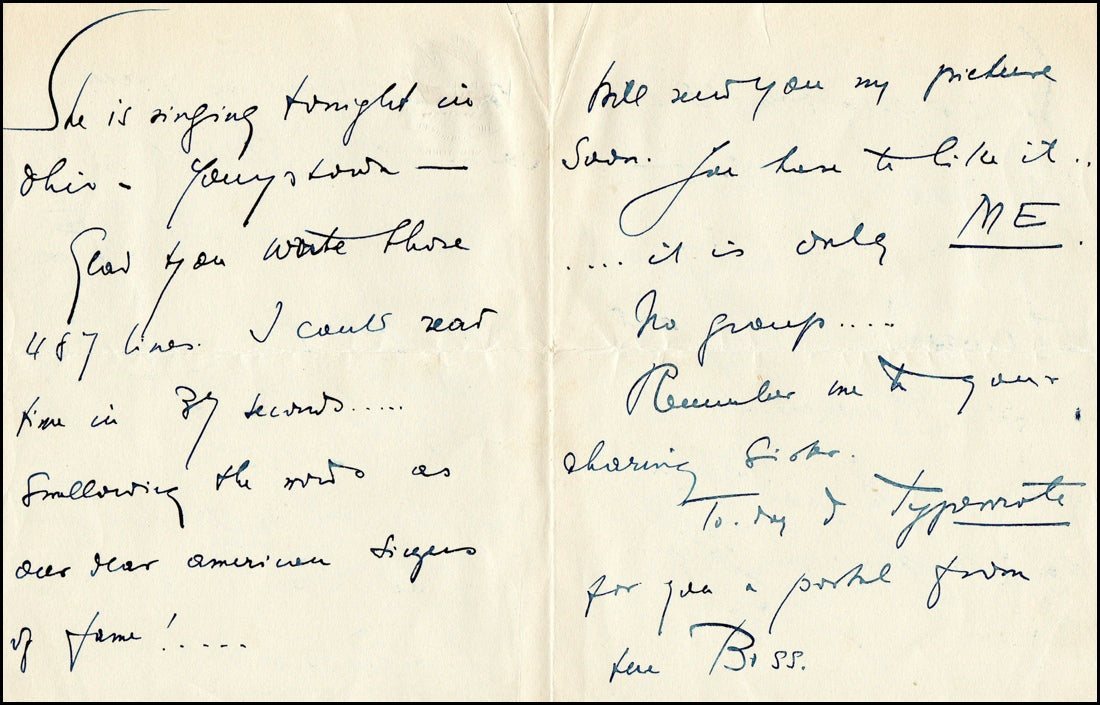 She is singing tonight in
Ohio - Youngstown —
Glad you wrote those
487 lines. I could read
time in 37 seconds.....
Swallowing the words as
our dear american singers
of fame!.....
Will send you my picture
Soon. You have to like it..
..... it is only ME.
No group.....
Remember me to your
charming Sister.
To-day I Typewrote
for you a postal from
the Boss.